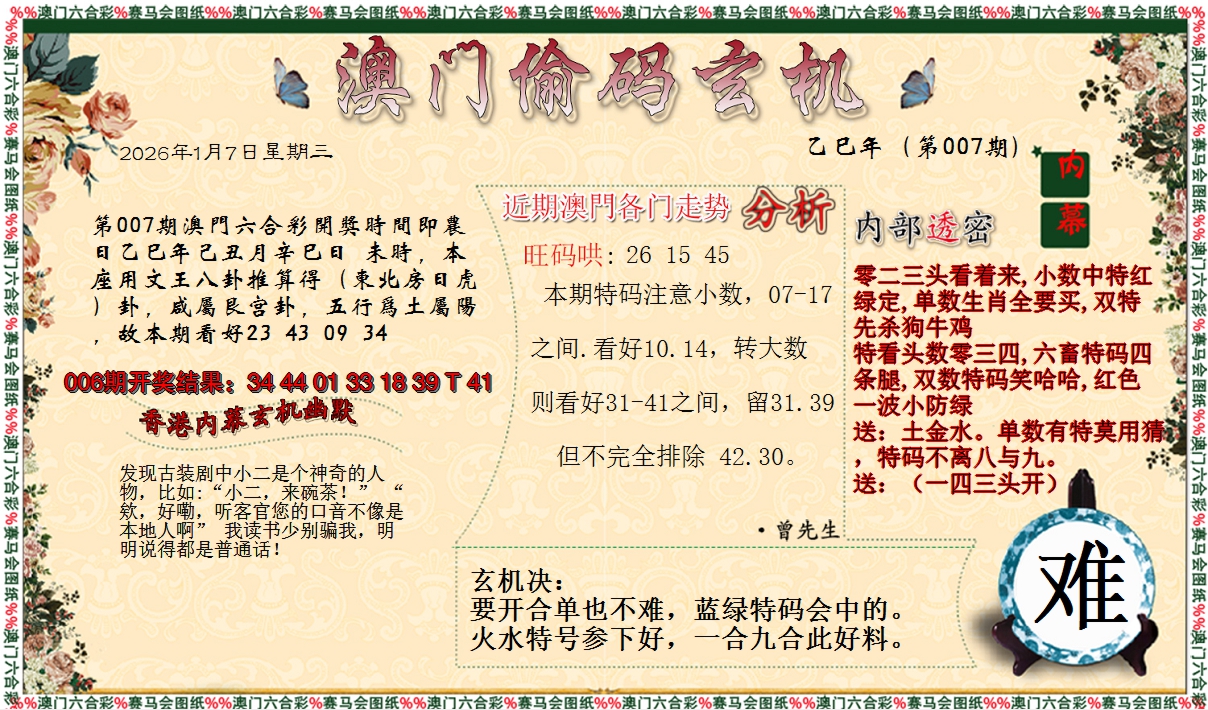 %%澳门六合彩%赛马会图纸%%澳门六合彩%赛马会图纸%%澳门六合彩%赛马会图纸%%澳门六合彩%赛马会图纸%%澳门六合彩%赛马会图纸%%澳门六合彩%赛马会图纸%%
澳门偷码玄机
2026年1月7日星期三
乙巳年（第007期）
第007期澳門六合彩開獎時間即農
日乙巳年己丑月辛巳日 未時，本
座用文王八卦推算得（東北房日虎
）卦，咸屬艮宫卦，五行爲土屬陽
，故本期看好23 43 09 34
006期开奖结果：34 44 01 33 18 39 T 41
香港内幕玄机幽默
发现古装剧中小二是个神奇的人
物，比如:“小二，来碗茶！” “
欸，好嘞，听客官您的口音不像是
本地人啊” 我读书少别骗我，明
明说得都是普通话！
近期澳門各门走势 分析
旺码哄: 26 15 45
本期特码注意小数，07-17
之间.看好10.14，转大数
则看好31-41之间，留31.39
但不完全排除 42.30。
·曾先生
内幕
内部透密
零二三头看着来,小数中特红
绿定,单数生肖全要买,双特
先杀狗牛鸡
特看头数零三四,六畜特码四
条腿,双数特码笑哈哈,红色
一波小防绿
送：土金水。单数有特莫用猜
，特码不离八与九。
送：（一四三头开）
玄机决：
要开合单也不难，蓝绿特码会中的。
火水特号参下好，一合九合此好料。
难
%%澳门六合彩%赛马会图纸%%澳门六合彩%赛马会图纸%%澳门六合彩%赛马会图纸%%澳门六合彩%赛马会图纸%%澳门六合彩%赛马会图纸%%澳门六合彩%赛马会图纸%%